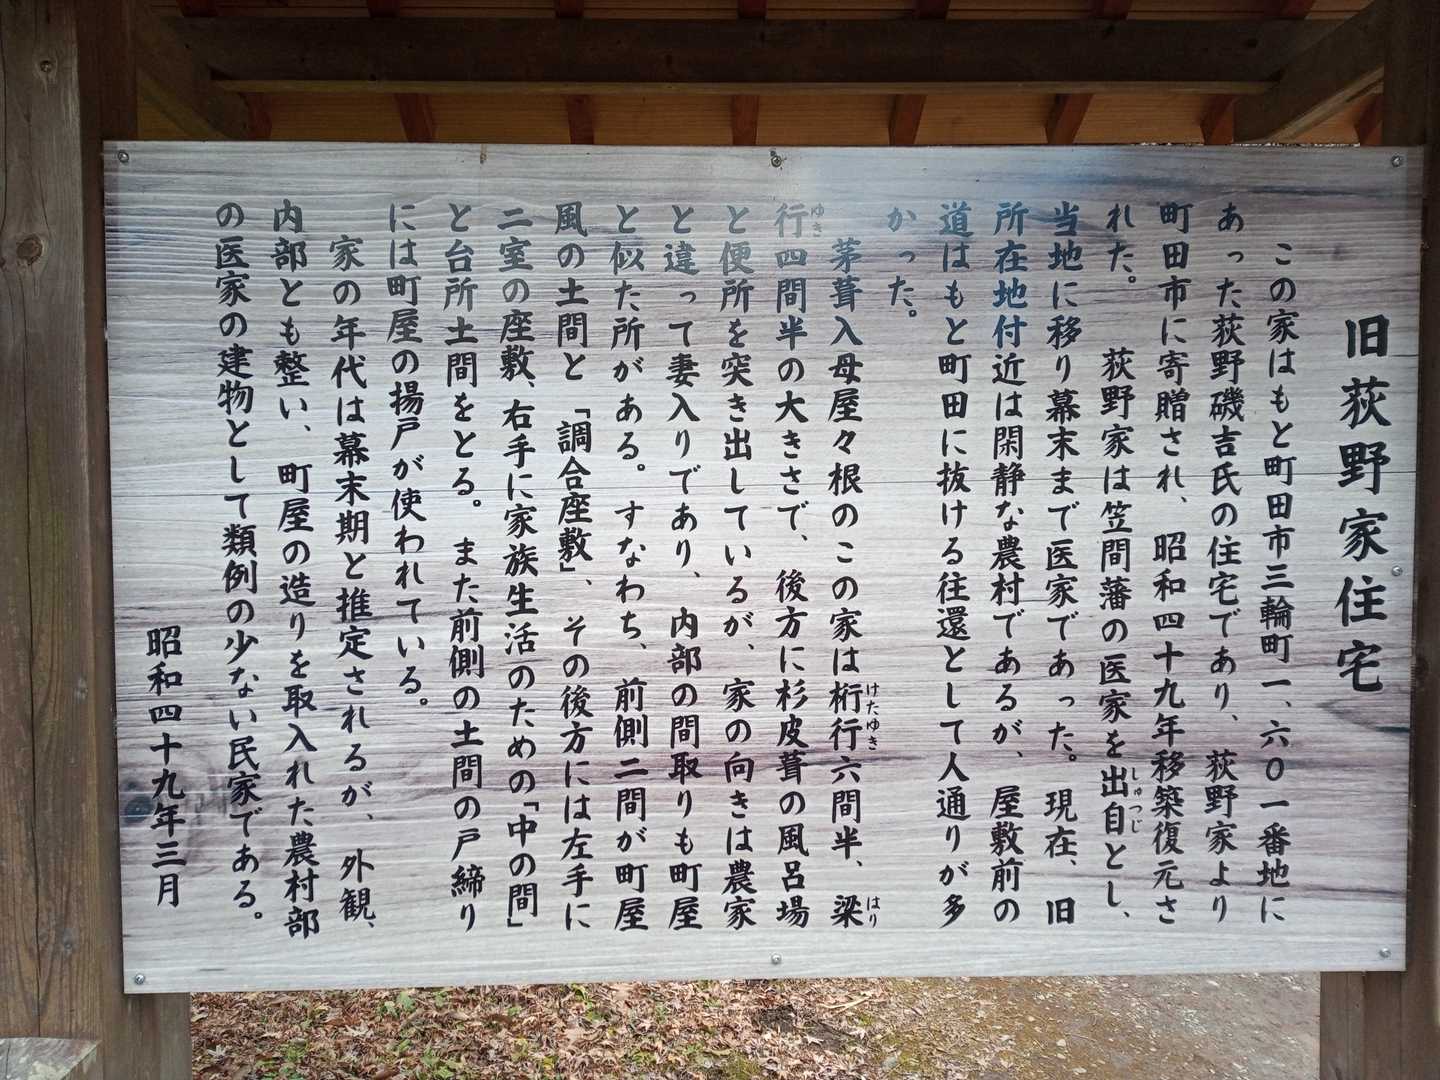 旧荻野家住宅
この家はもと町田市三輪町一、六〇一番地に
あった荻野磯吉氏の住宅であり、荻野家より
町田市に寄贈され、昭和四十九年移築復元さ
れた。 荻野家は笠間藩の医家を出自とし、
しゅつじ
当地に移り幕末まで医家であった。現在、旧
所在地付近は閑静な農村であるが、屋敷前の
道はもと町田に抜ける往還として人通りが多
かった。
茅葺入母屋々根のこの家は桁行六間半、梁
けたゆき はり
行四間半の大きさで、後方に杉皮葺の風呂場
ゆき
と便所を突き出しているが、家の向きは農家
と違って妻入りであり、内部の間取りも町屋
と似た所がある。すなわち、前側二間が町屋
風の土間と「調合座敷」、その後方には左手に
二室の座敷、右手に家族生活のための「中の間」
と台所土間をとる。また前側の土間の戸締り
には町屋の揚戸が使われている。
家の年代は幕末期と推定されるが、外観、
内部とも整い、町屋の造りを取入れた農村部
の医家の建物として類例の少ない民家である。
昭和四十九年三月